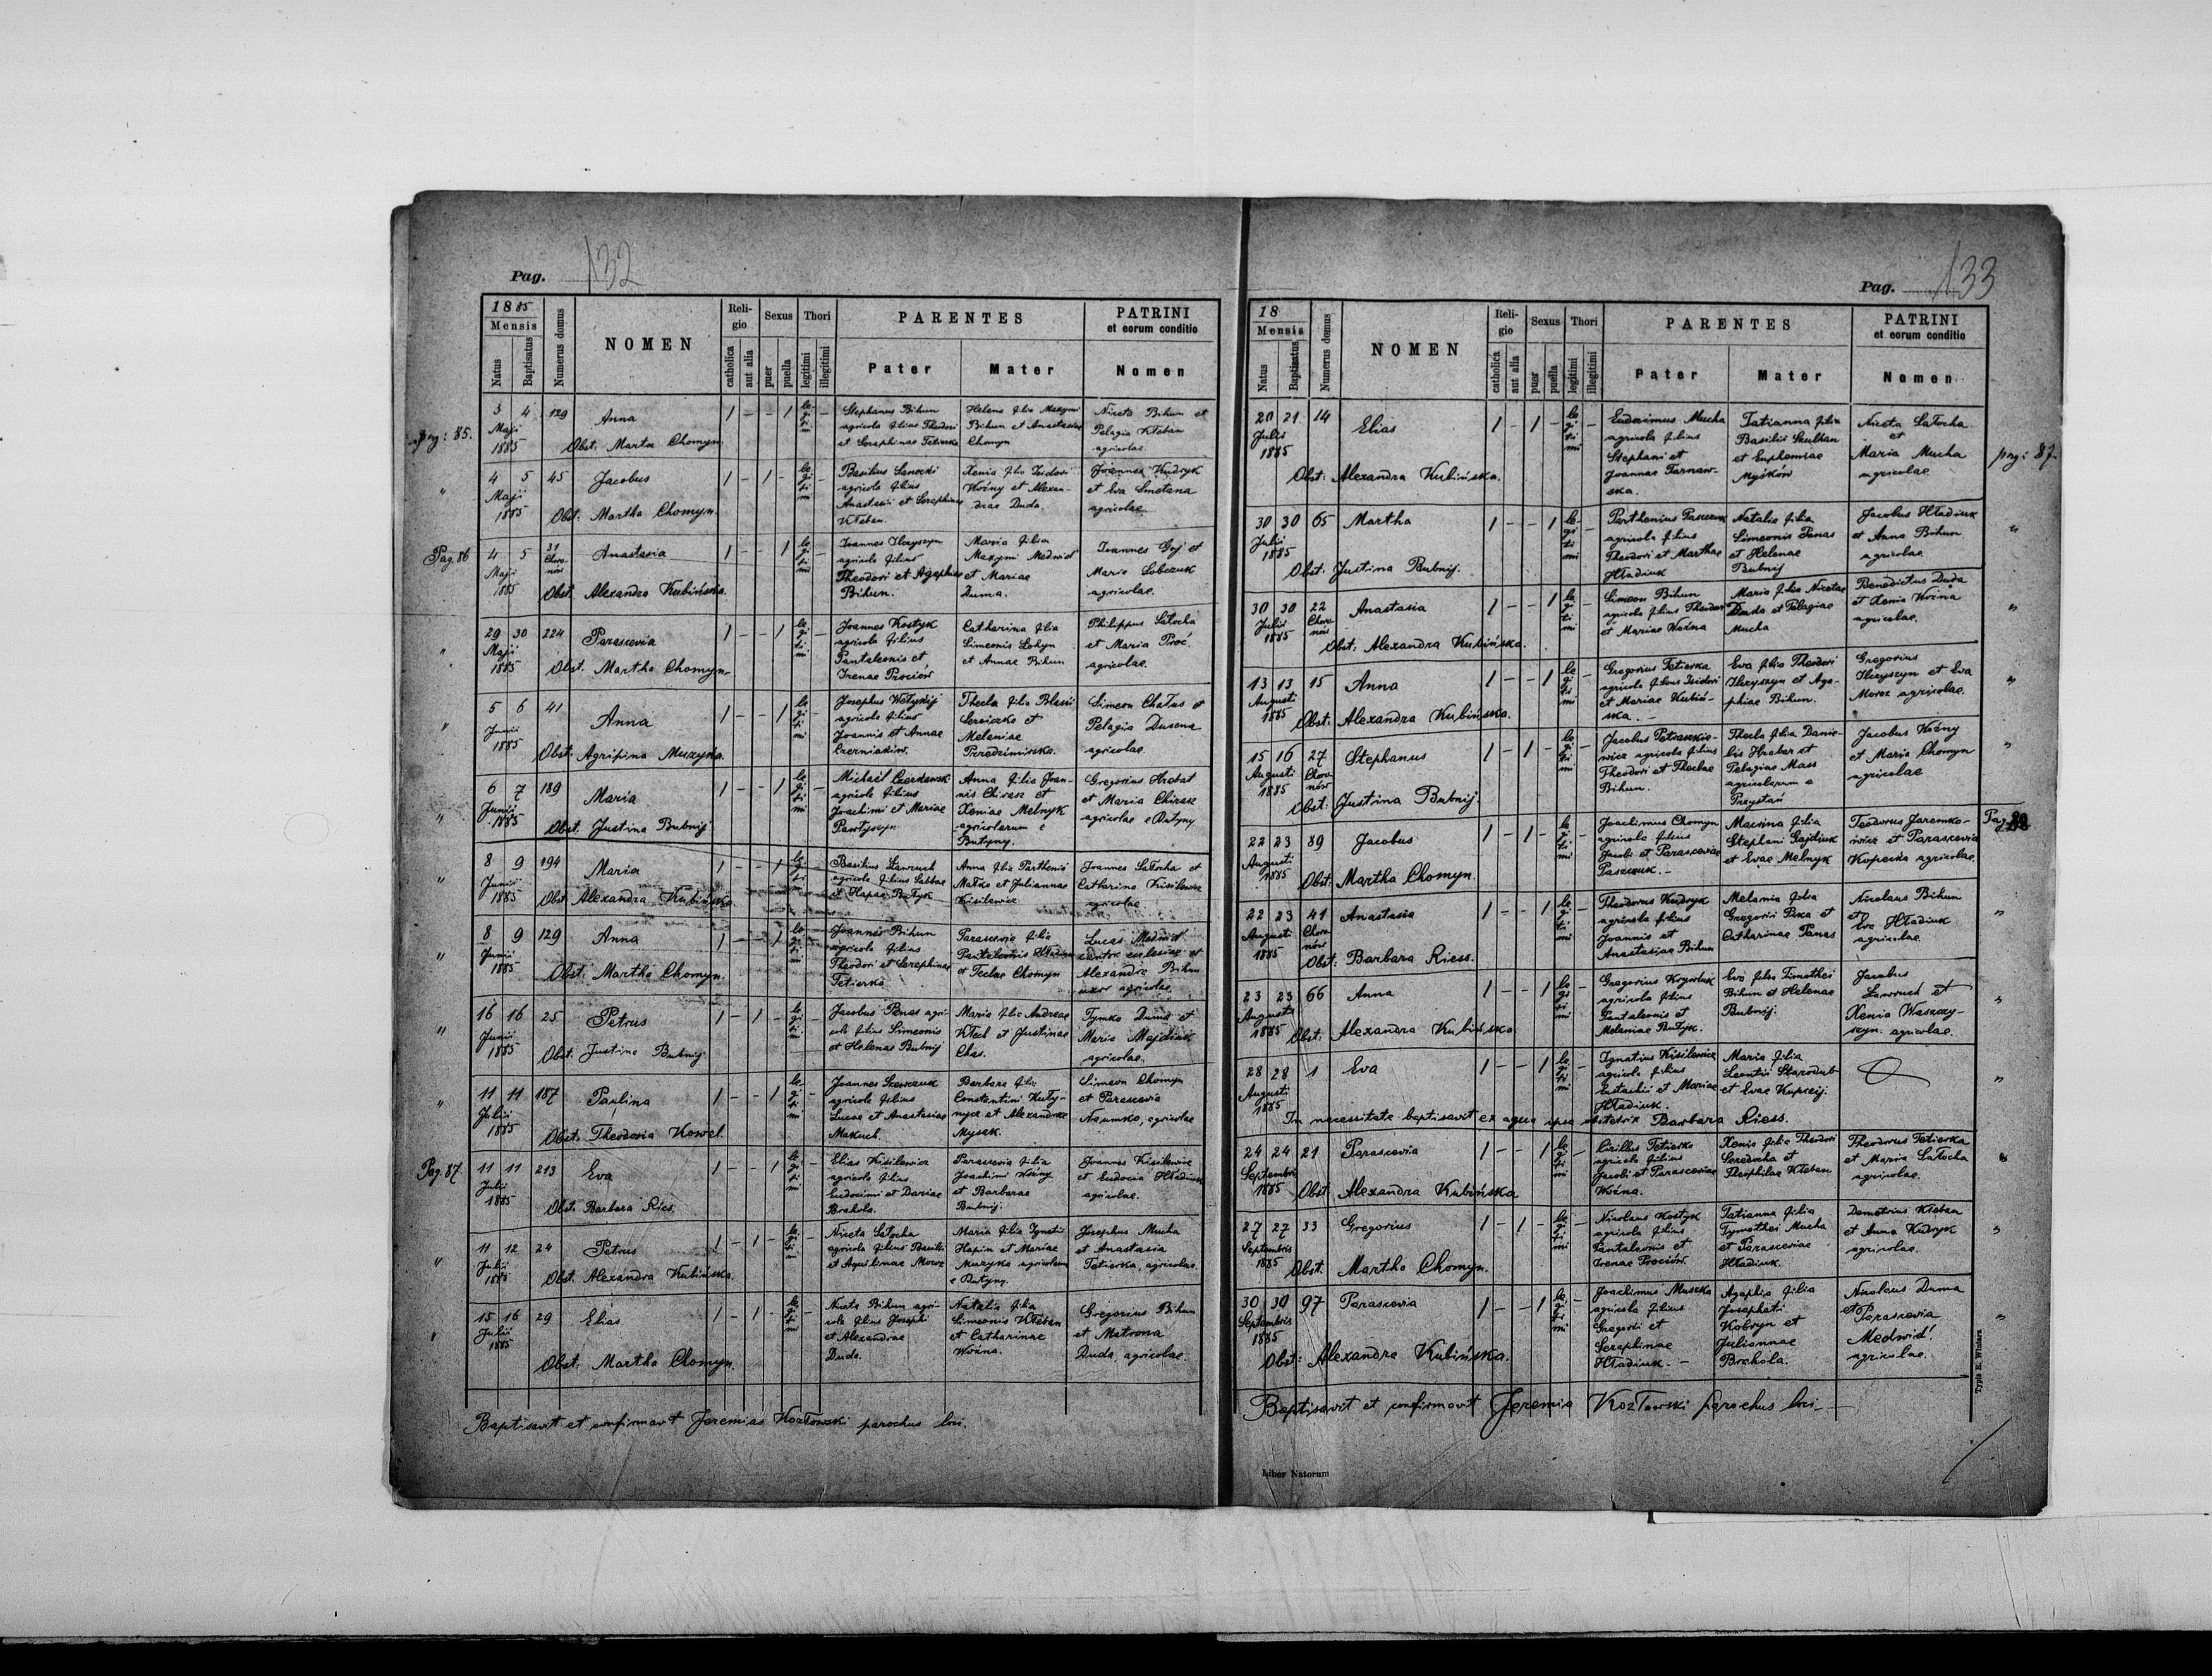 Pag. 132
1885
Mensis
Natus
Baptisatus
Numerus domus
NOMEN
Reli-
gio
catholica
aut alia
Sexus
puer
puella
Thori
legitimi
illegitimi
PARENTES
Pater
Mater
PATRINI
et eorum conditio
Nomen
pag: 85.
3 4 129 Anna 1 - - 1 legitimi -
Maji
1885
Obst. Marta Chomyn
Stephanus Bihun
agricola filius Theodori
et Seraphinae Tetierka
Helena filia Maxymi
Bihun et Anastasiae
Chomyn
Niceta Bihun et
Pelagia Kłeban
agricolae
"
4 5 45 Jacobus 1 - 1 - legitimi
Maji
1885
Obst. Martha Chomyn.
Basilius Sanocki
agricola filius
Anastasii et Seraphinae
Kłeban.
Xenia filia Isidori
Woźny et Alexan-
drae Duda.
Joannes Kudryk
et Eva Smetana
agricolae
Pag. 86
4 5 31 Choronów Anastasia 1 - - 1 legitimi -
Maji
1885
Obst. Alexandra Kubińska.
Joannes Ilczyszyn
agricola filius
Theodori et Agaphiae
Bihun.
Maria filia
Maxymi Medwid
et Mariae
Duma.
Joannes Goj et
Maria Sobczuk
agricolae.
"
29 30 224 Parascevia 1 - - 1 legitimi
Maji
1885
Obst. Martha Chomyn
Joannes Kostyk
agricola filius
Pantaleonis et
Irenae Prociów
Catharina filia
Simeonis Sohyn
et Annae Bihun
Philippus Sałocha
et Maria Proć
agricolae.
"
5 6 41 Anna 1 - - 1 legitimi -
Junii
1885
Obst. Agripina Muzyka.
Josephus Wełykij
agricola filius
Joannis et Annae
Czerniaków.
Thecla filia Blasii
Serviczko et
Melaniae
Przedzimirska.
Simeon Chałas et
Pelagia Dusena
agricolae.
"
6 7 189 Maria 1 - - 1 legitimi -
Junii
1885
Obst. Justina Bubnij
Michaël Czerkawski
agricola filius
Joachimi et Mariae
Pawłyszyn
Anna filia Joan-
nis Chirasz et
Xeniae Melnyk
agricolarum e
Butyny.
Gregorius Hrabat
et Maria Chirasz
agricolae e Butyny
"
8 9 194 Maria 1 - - 1 legitimi
Junii
1885
Obst. Alexandra Kubińska
Basilius Ławruch
agricola filius Sabbae
et Hapae Butyk
Anna filia Parthenii
Matko et Juliannae
Kisilewicz
Joannes Sałocha et
Catharina Kisilewicz
agricolae
"
8 9 129 Anna 1 - - 1 legitimi
Junii
1885
Obst. Martha Chomyn.
Joannes Bihun
agricola filius
Theodori et Seraphinae
Tetierka
Parascevia filia
Pantaleonis Hładiuk
et Teclae Chomyn
Lucas Medwid
cantor ecclesiae et
Alexandra Bihun
uxor agricolae
"
16 16 25 Petrus 1 - 1 - legitimi
Junii
1885
Obst. Justina Bubnij
Jacobus Panas agri-
cola filius Simeonis
et Helenae Bubnij
Maria filia Andreae
Kłech et Justinae
Chas.
Tymko Duma et
Maria Majdiuk
agricolae.
"
11 11 187 Paulina 1 - - 1 legitimi -
Julii
1885
Obst. Theodosia Kowel.
Joannes Szewczuk
agricola filius
Lucae et Anastasiae
Makuch.
Barbara filia
Constantini Kuty-
nycz et Alexandrae
Mysak.
Simeon Chomyn
et Parascevia
Naumko, agricolae
Pag. 87.
11 11 213 Eva 1 - - 1 legitimi -
Julii
1885
Obst. Barbara Ries.
Elias Kisilewicz
agricola filius
Eudocimi et Dariae
Brohola.
Parascevia filia
Joachimi Woźny
et Barbarae
Bubnij.
Joannes Kisilewicz
et Eudocia Hładiuk
agricolae.
"
11 12 24 Petrus 1 - 1 - legitimi -
Julii
1885
Obst. Alexandra Kubińska.
Niceta Sałocha
agricola filius Basilii
et Aquilinae Moroz
Maria filia Ignatii
Hapin et Mariae
Muzyka agricolarum
e Butyny.
Josephus Mucha
et Anastasia
Tetierka, agricolae.
"
15 16 29 Elias 1 - 1 - legitimi -
Julii
1885
Obst. Martha Chomyn.
Niceta Bihun agri-
cola filius Josephi
et Alexandrae
Duda.
Natalia filia
Simeonis Kłeban
et Catharinae
Woźna.
Gregorius Bihun
et Matrona
Duda, agricolae.
Baptisavit et confirmavit Jeremias Kozłowski parochus loci.
Pag. 133
18
Mensis
Natus
Baptisatus
Numerus domus
NOMEN
Reli-
gio
catholica
aut alia
Sexus
puer
puella
Thori
legitimi
illegitimi
PARENTES
Pater
Mater
PATRINI
et eorum conditio
Nomen
20 21 14 Elias 1 - 1 - legitimi -
Julii
1885
Obst: Alexandra Kubińska.
Eudocimus Mucha
agricola filius
Stephani et
Joannae Tarnaw-
ska.
Tatianna filia
Basilii Szulhan
et Euphemiae
Myśków
Niceta Sałocha
et
Maria Mucha
agricolae
pag: 87.
30 30 65 Martha 1 - - 1 legitimi -
Julii
1885
Obst. Justina Bubnij.
Parthenius Paszczuk
agricola filius
Theodori et Marthae
Hładiuk
Natalia filia
Simeonis Panas
et Helenae
Bubnij
Jacobus Hładiuk
et Anna Bihun
agricolae
"
30 30 22 Choronów Anastasia 1 - - 1 legitimi -
Julii
1885
Obst: Alexandra Kubińska.
Simeon Bihun
agricola filius Theodori
et Mariae Woźna
Maria filia Nicetae
Duda et Pelagiae
Mucha
Benedictus Duda
et Xenia Woźna
agricolae.
"
13 13 15 Anna 1 - - 1 legitimi -
Augusti
1885
Obst. Alexandra Kubińska.
Gregorius Tetierka
agricola filius Isidori
et Mariae Kubiń-
ska. -
Eva filia Theodori
Ilczyszyn et Aga-
phiae Bihun.
Gregorius
Ilczyszyn et Eva
Moroz agricolae.
"
15 16 27 Choronów Stephanus 1 - 1 - legitimi -
Augusti
1885
Obst: Justina Bubnij.
Jacobus Petraszkie-
wicz agricola filius
Theodori et Theclae
Bihun.
Thecla filia Danie-
lis Hrabar et
Pelagiae Mass
agricolarum e
Przystań
Jacobus Woźny
et Maria Chomyn
agricolae
"
22 23 89 Jacobus 1 - 1 - legitimi
Augusti
1885
Obst. Martha Chomyn.
Joachimus Chomyn
agricola filius
Jacobi et Parasceviae
Paszczuk. -
Macrina filia
Stephani Gajdiuk
et Evae Melnyk
Teodorus Jaremko-
wicz et Parascevia
Kopecka agricolae.
Pag.
22 23 41 Choronów Anastasia 1 - - 1 legitimi -
Augusti
1885
Obst: Barbara Riess.
Theodorus Kudryk
agricola filius
Joannis et
Anastasiae Bihun
Melania filia
Gregorii Pika et
Catharinae Panas
Nicolaus Bihun
et
Eva Hładiuk
agricolae.
"
23 23 66 Anna 1 - - 1 legitimi -
Augusti
1885
Obst: Alexandra Kubińska
Gregorius Krywluk
agricola filius
Pantaleonis et
Melaniae Butyk.
Eva filia Timothei
Bihun et Helenae
Bubnij.
Jacobus
Ławruch et
Xenia Waszczy-
szyn. agricolae.
"
28 28 1 Eva 1 - - 1 legitimi -
Augusti
1885
Ignatius Kisilewicz
agricola filius
Eustachii et Mariae
Hładiuk.
Maria filia
Leontii Starodub
et Evae Kupreij.
"
In necessitate baptisavit ex aqua ipsa obstetrix Barbara Riess.
24 24 21 Parascevia 1 - - 1 legitimi -
Septembris
1885
Obst. Alexandra Kubińska
Cirillus Tetierka
agricola filius
Jacobi et Parasceviae
Woźna.
Xenia filia Theodori
Seredocha et
Theophilae Kłeban
Theodorus Tetierka
et Maria Sałocha
agricolae.
"
27 27 33 Gregorius 1 - 1 - legitimi -
Septembris
1885
Obst. Martha Chomyn.
Nicolaus Kostyk
agricola filius
Pantaleonis et
Irenae Prociów.
Tatianna filia
Tymothei Mucha
et Parasceviae
Hładiuk.
Demetrius Kłeban
et Anna Kudryk
agricolae.
"
30 30 97 Parascevia 1 - - 1 legitimi -
Septembris
1885
Obst: Alexandra Kubińska.
Joachimus Muszka
agricola filius
Gregorii et
Seraphinae
Hładiuk. -
Agaphia filia
Josaphati
Kobryn et
Juliannae
Brohola.
Nicolaus Duma
et Parascevia
Medwid
agricolae.
"
Baptisavit et confirmavit Jeremia Kozłowski parochus loci
Typis E. Winiarz
Liber Natorum